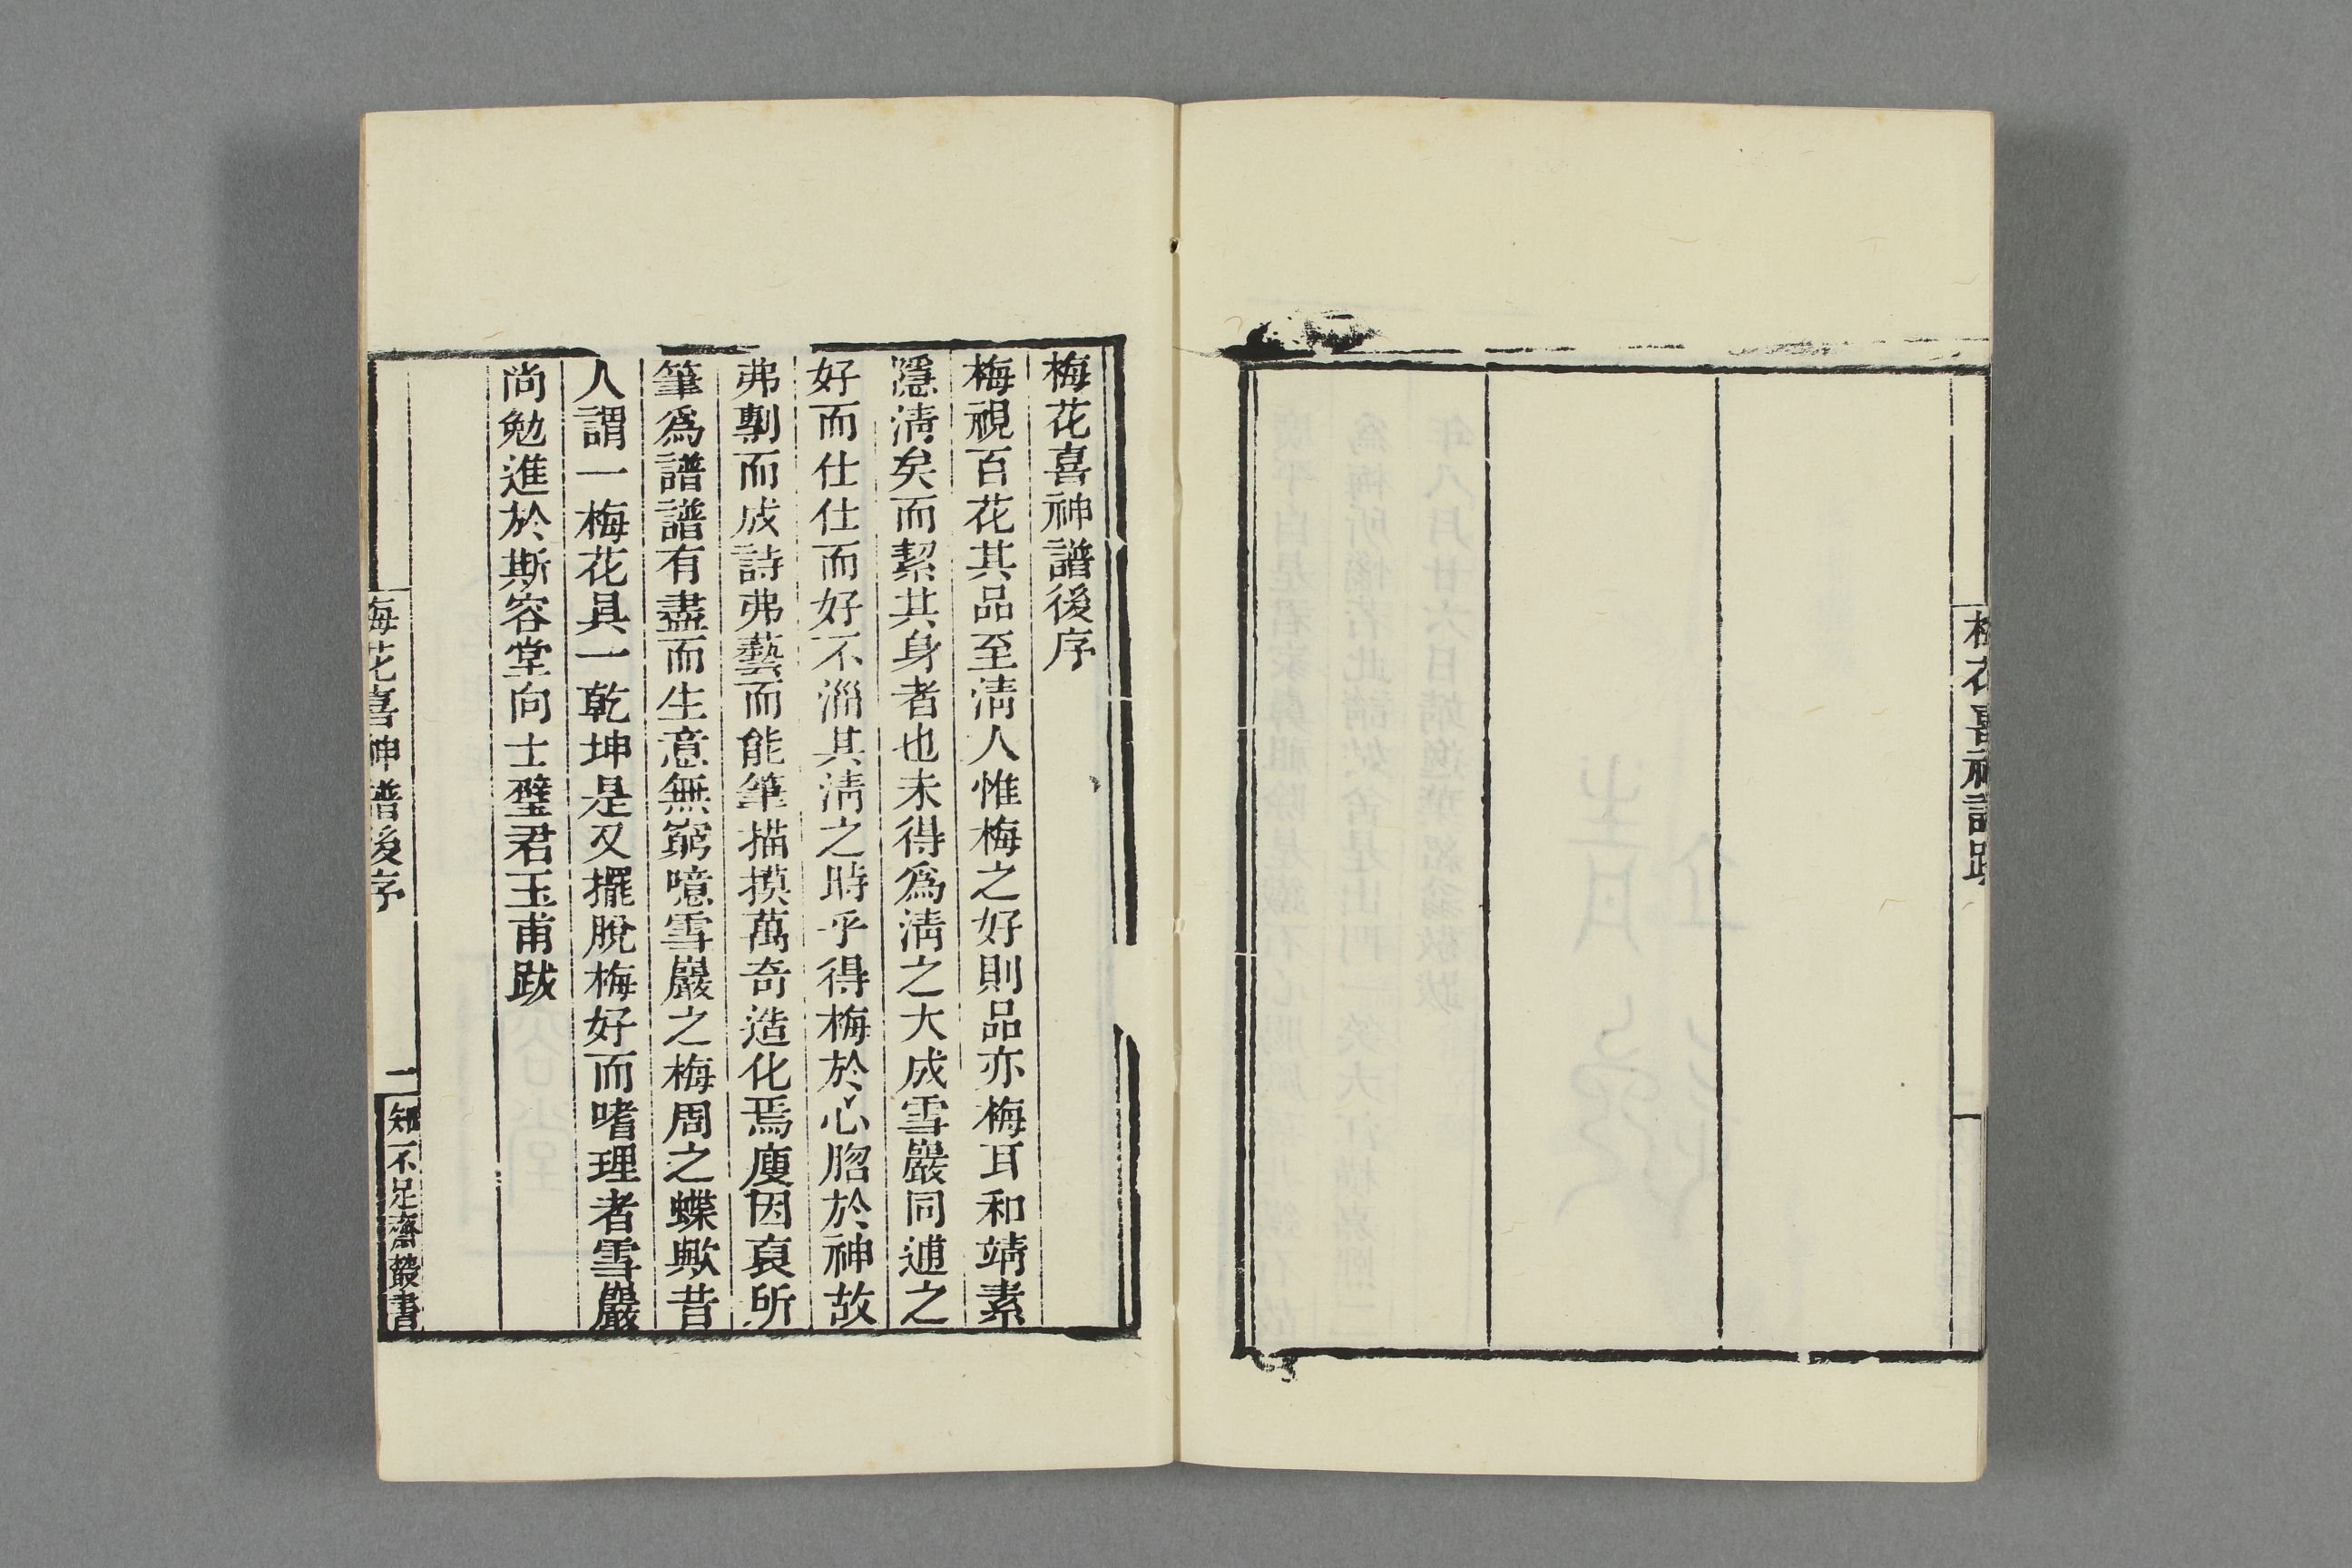 梅花喜神譜跋
梅花喜神譜後序
梅視百花其品至淸人惟梅之好則品亦梅耳和靖素
隱淸矣而絜其身者也未得爲淸之大成雪巖同逋之
好而仕仕而好不淄其淸之時乎得梅於心㫚於神故
弗劓而成詩弗藝而能筆描摸萬奇造化焉廋因裒所
筆爲譜譜有盡而生意無窮噫雪巖之梅周之蝶歟昔
人謂一梅花具一乾坤是又擺脫梅好而嗜理者雪巖
尚勉進於斯容堂向士璧君玉甫跋
梅花喜神譜後序
一
知不足齋叢書